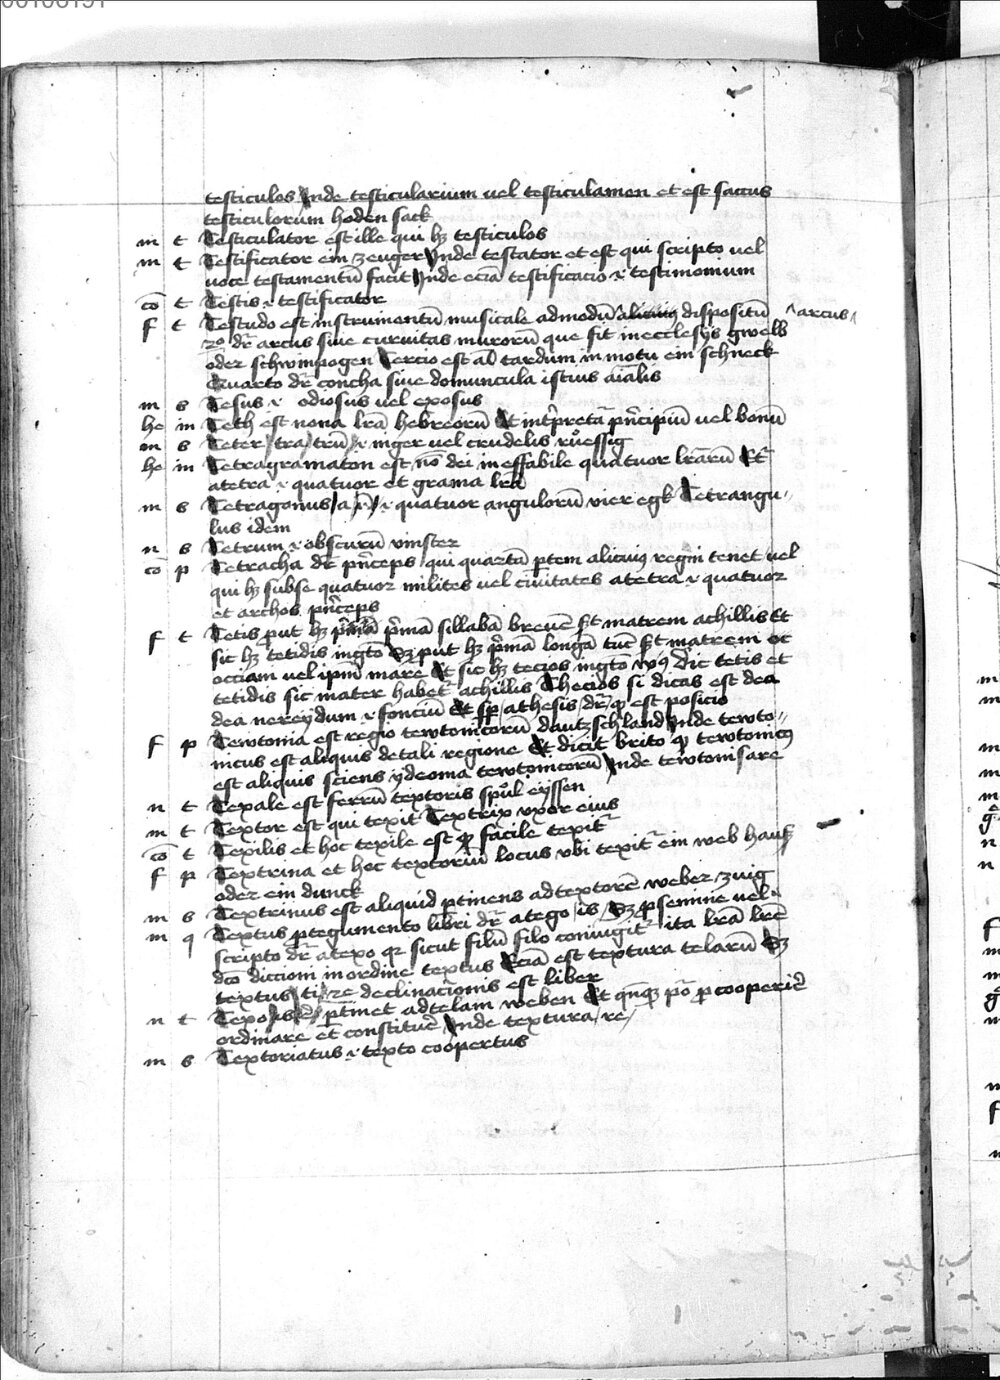 00100191
testiculos Inde testicularium uel testiculamen et est saccus
testiculorum hoden sack
m t Testiculator est ille qui hʒ testiculos
m t Testificator ein zeuger Inde testator et est qui scripto uel
uoce testamentū facit Inde eciā testificacio .i. testimonium
cō t Testis .i. testificator
f t Testudo est instrumentū musicale admodū dispositū ^arcus^
2o dr̄ arcus siue curuitas murorū que fit in ecclesijs gwelb
oder schwinpogen Tercio est aīal tardum in motu ein schneck
Quarto dr̄ concha siue domuncula istius aīalis
m s Tesus .i. odiosus uel exosus
he in Teth est nona lr̄a hebreorū Et int̄pretat̄ pn̄cipiū uel bonū
m s Teter/tra/trū/.i. niger uel crudelis rüessig
he in Tetragramaton est nō dei ineffabile quatuor lr̄arū Et
a tetra .i. quatuor et grama lr̄a
m s Tetragonus/a/ū/.i. quatuor angulorū vier egk Tetrangu„
lus idem
n s Tetrum .i. obscurū vinster
cō p Tetracha dr̄ pn̄ceps qui quartā ꝑtem alicuiꝰ regni tenet uel
qui hʒ sub se quatuor milites uel ciuitates a tetra .i. quatuor
et archos pn̄ceps
f t Tetis put hʒ pͥmā sillabā breuē st matrem achillis Et
sic hʒ tetidis in gtō Sʒ put hʒ pͥmā longā tūc st matrem et
occiam uel ipm̄ mare Et sic hʒ tecios in gto wꝰ dic tetis et
tetidis sic mater habet̄ achillis Thecios si dicas est dea
dea nereydum .i. fonciū Et sp̄ athesis dr̄ qd est posicio
f p Tewtonia est regio tewtonicorū dautzschland Inde tewto„
nicus est aliquis de tali regione Et dicit brito qd tewtonicꝰ
est aliquis sciens ydeoma tewtonicorū Inde tewtonisare
n t Texale est ferrū textoris spuͦl eyssen
m t Textor est qui texit Textrix vxor eius
cō t Texilis et hoc texile est qd facile texit̄
f p Textrina et hec textoriū locus vbi texit̄ ein web hauß
oder ein dunck
m s Textrinus est aliquid ꝑtinens ad textorē weber zuig
m q Textus ꝑtegumento libri dr̄ a tego/is/ Sʒ ꝓ sermine uel
scripto dr̄ a texo qr sicut filū filo coniūgit̄ ita lr̄a lr̄e
dcō diccioni in ordine textus Eciā est textura telarū Sʒ
textus/ti/2e declinac̄ionis est liber
n t Texo/is/ ꝑt̄met ad telam weben Et qn̄qʒ pō ꝓ cooperiē
ordinare et̄ constituē Inde textura/re/
m s Textoriatus .i. texto coopertus